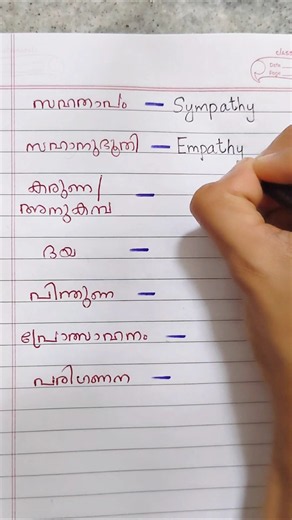 class
Date
Page
സഹതാപം — Sympathy
സഹാനുഭൂതി — Empathy
കരുണ /
അനുകമ്പ —
ദയ —
പിന്തുണ —
പ്രോത്സാഹനം —
പരിഗണന —